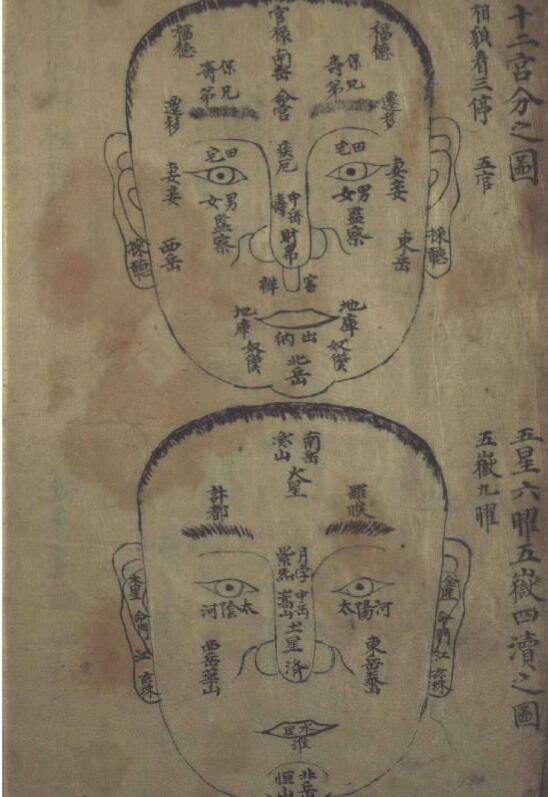 十二宮分之圖
相貌看三停 五官
官祿
南岳
命宮
福德
福德
保兄
壽弟
保兄
壽弟
遷移
遷移
田宅
田宅
疾厄
妻妾
妻妾
男女
男女
監察
監察
中岳
壽
財帛
採聽
採聽
東岳
西岳
審辨
地庫
地庫
出納
奴僕
奴僕
北岳
五星六曜五嶽四瀆之圖
五嶽九曜
南岳
火星
羅睺
計都
月孛
紫炁
中岳
嵩山
土星
濟
太陽河
太陰河
東岳泰山
西岳華山
金星
命門
江
命門
江
水星
淮
北岳
恒山